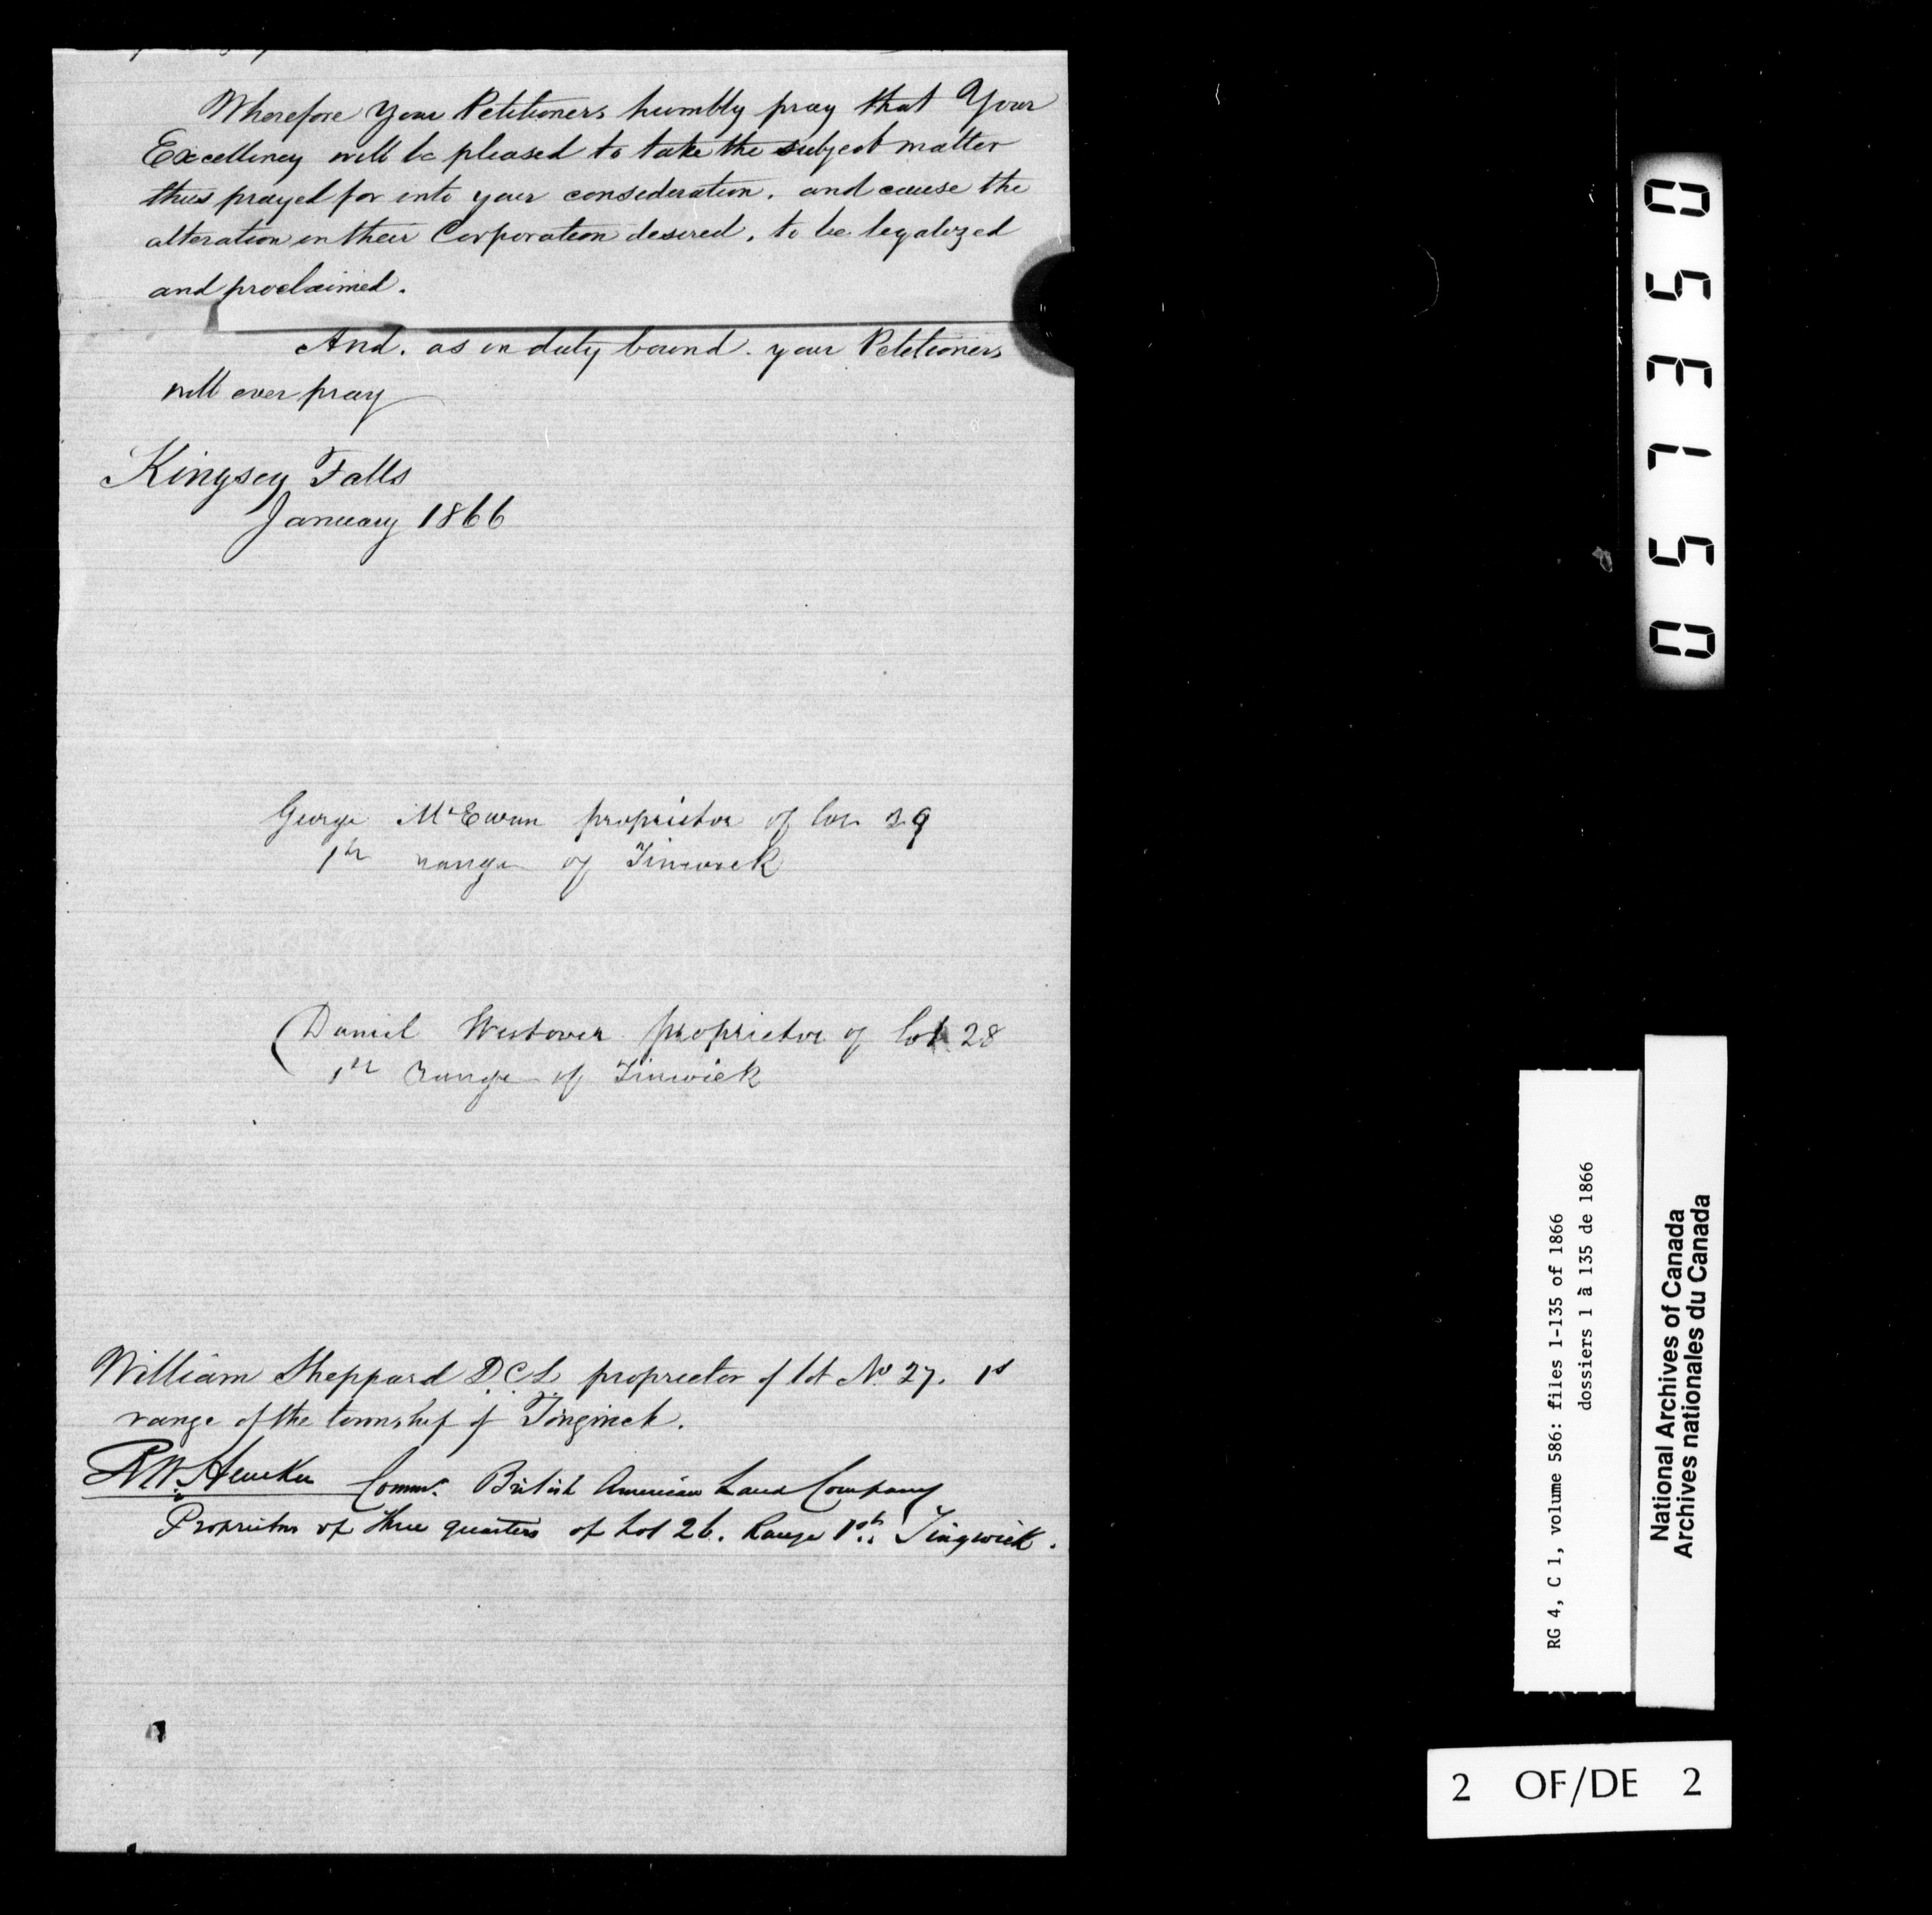 Wherefore Your Petitioners humbly pray that Your
Excellency will be pleased to take the subject matter
thus prayed for into your consideration. and cause the
alteration in their Corporation desired, to be legalized
and proclaimed.
And. as in duty bound. your Petitioners
will ever pray
Kingsey Falls
January 1866
George McEwan proprietor of lot 29
1st range of Tinwick
Daniel Westover proprietor of lot 28
1st range of Tinwick
William Sheppard D.C.L proprietor of lot No 27. 1st
range of the township of Tingwick.
R W. Heneker Commr. British American Land Company
Proprietors of three quarters of Lot 26. Range 1st. Tingwick.
051350
RG 4, C 1, volume 586: files 1-135 of 1866
dossiers 1 à 135 de 1866
National Archives of Canada
Archives nationales du Canada
2 OF/DE 2